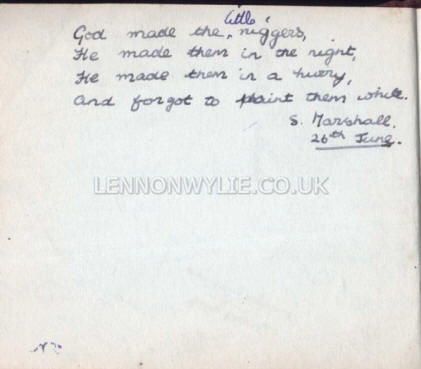 little
God made the niggers,
He made them in the night,
He made them in a hurry,
And forgot to paint them white.
S. Marshall.
26th June.
LENNONWYLIE.CO.UK